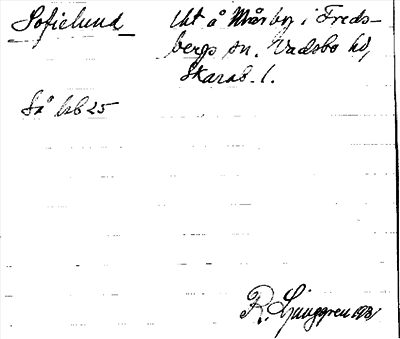 Sofielund Lht å Mårby i Freds-
bergs sn. Vadsbo hd,
Skarab. l.
Så lsb 25
R. Ljunggren 1931